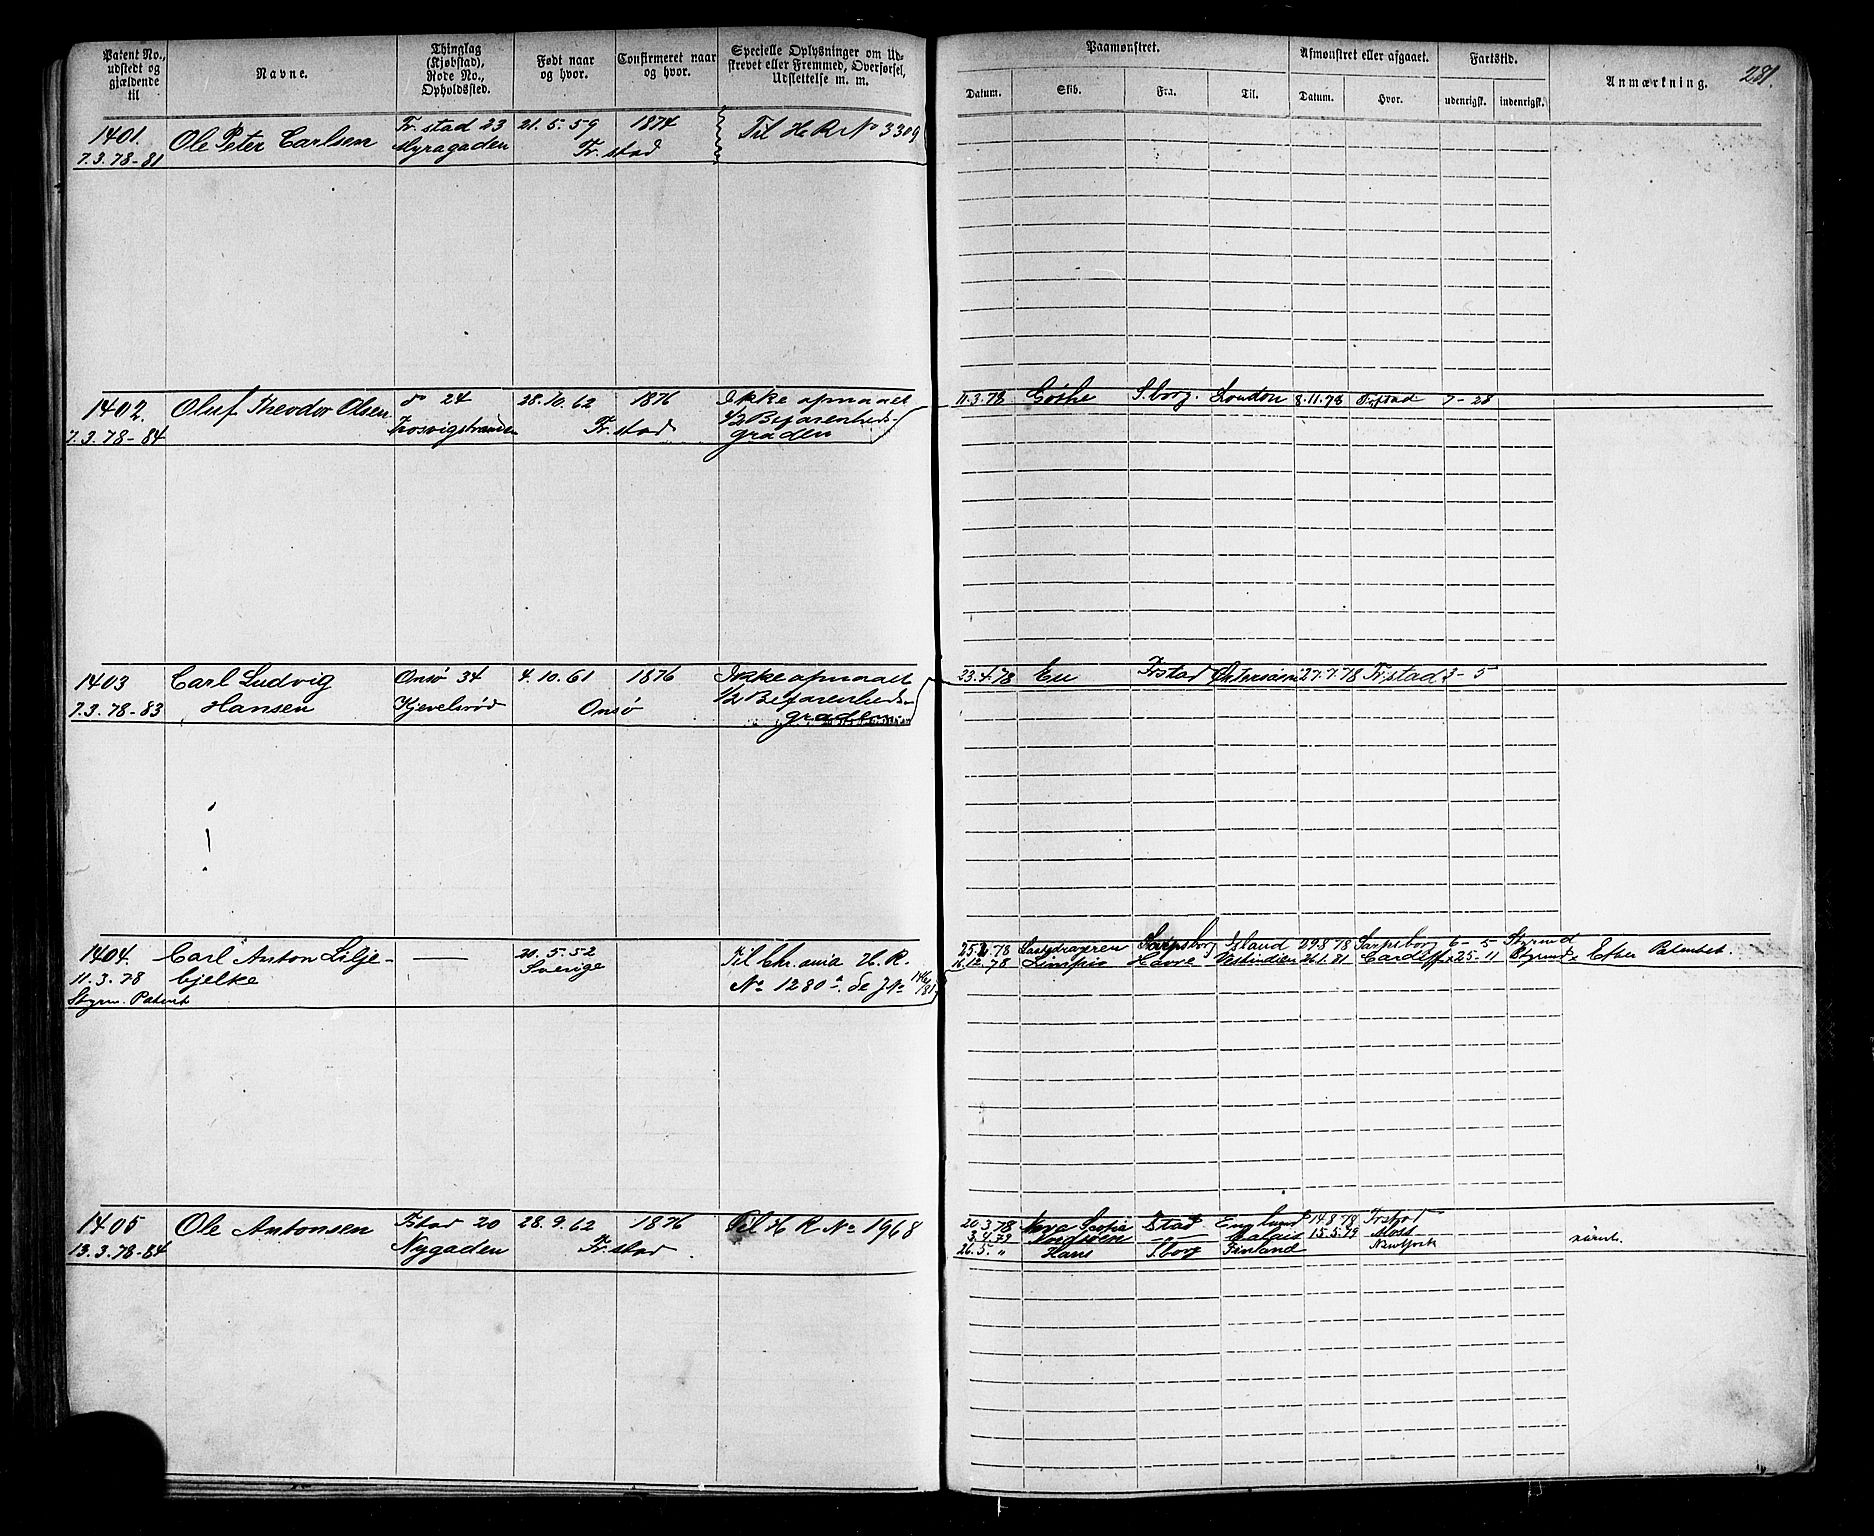 Patent No., udstedt og gjældende til
Navne.
Thinglag (Kjøbstad), Rode No., Opholdssted.
Født naar og hvor.
Confirmeret naar og hvor.
Specielle Oplysninger om Udstrevet eller Fremmed, Overførsel, Udslettelse m. m.
Paamønstret.
Datum. Skib. Fra. Til.
Afmønstret eller afgaaet.
Datum. Hvor.
Fartstid.
udenrigsk. indenrigsk.
Anmærkning.
281.
1401. Ole Peter Carlsen Fr.stad 23 21.5.59 1874 Til H R No 3309
7.3.78-81 Myragaden Fr.stad
1402. Oluf Theodor Olsen do 24 28.10.62 1876 Ikke opnaaet 11.3.78 Göthe S.borg. London 8.11.78 Frstad 7-28
7.3.78-84 Trosvigstranden Fr.stad 1/2 Befarenheds-
graden
1403 Carl Ludvig Onsø 34 4.10.61 1876 Ikke opnaaet 23.4.78 Eu Frstad Østersøen 27.7.78 Fr.stad 3-5
7.3.78-83 Hansen Kjevelsrød Onsø 1/2 Befarenheds-
graden
1404. Carl Anton Lilje- — 20.5.52 Til Chr.ania H. R. 78 Sarpsborg Island 29.8.78 Sarpsborg 6-5 Styrmd
11.3.78 bjelke Sverige No 1280 12.78 Havre Vestindien 26.1.81 Cardiff 25-11 Styrmd Efter Patentet.
Styrm. Patent
1405 Ole Antonsen Fstad 20 28.9.62 1876 Til H R No 1968 20.3.78 Nova Scotia Fstad England 14.8.78 Frstad
13.3.78-84 Nygaden Fr.stad 3.4.79 Calais 15.5.79 Moss
26.5. " Hans Sborg Finland Newyork rømt.